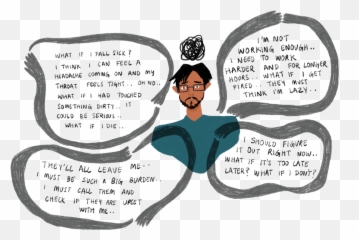 WHAT IF I FALL SICK?
I THINK I CAN FEEL A
HEADACHE COMING ON AND MY
THROAT FEELS TIGHT.. OH NO..
WHAT IF I HAD TOUCHED
SOMETHING DIRTY.. IT
COULD BE SERIOUS..
WHAT IF I DIE..
I'M NOT
WORKING ENOUGH..
I NEED TO WORK
HARDER AND FOR LONGER
HOURS.. WHAT IF I GET
FIRED.. THEY MUST
THINK I'M LAZY..
THEY'LL ALL LEAVE ME..
I MUST BE SUCH A BIG BURDEN..
I MUST CALL THEM AND
CHECK IF THEY ARE UPSET
WITH ME..
I SHOULD FIGURE
IT OUT RIGHT NOW..
WHAT IF IT'S TOO LATE
LATER? WHAT IF I DON'T?